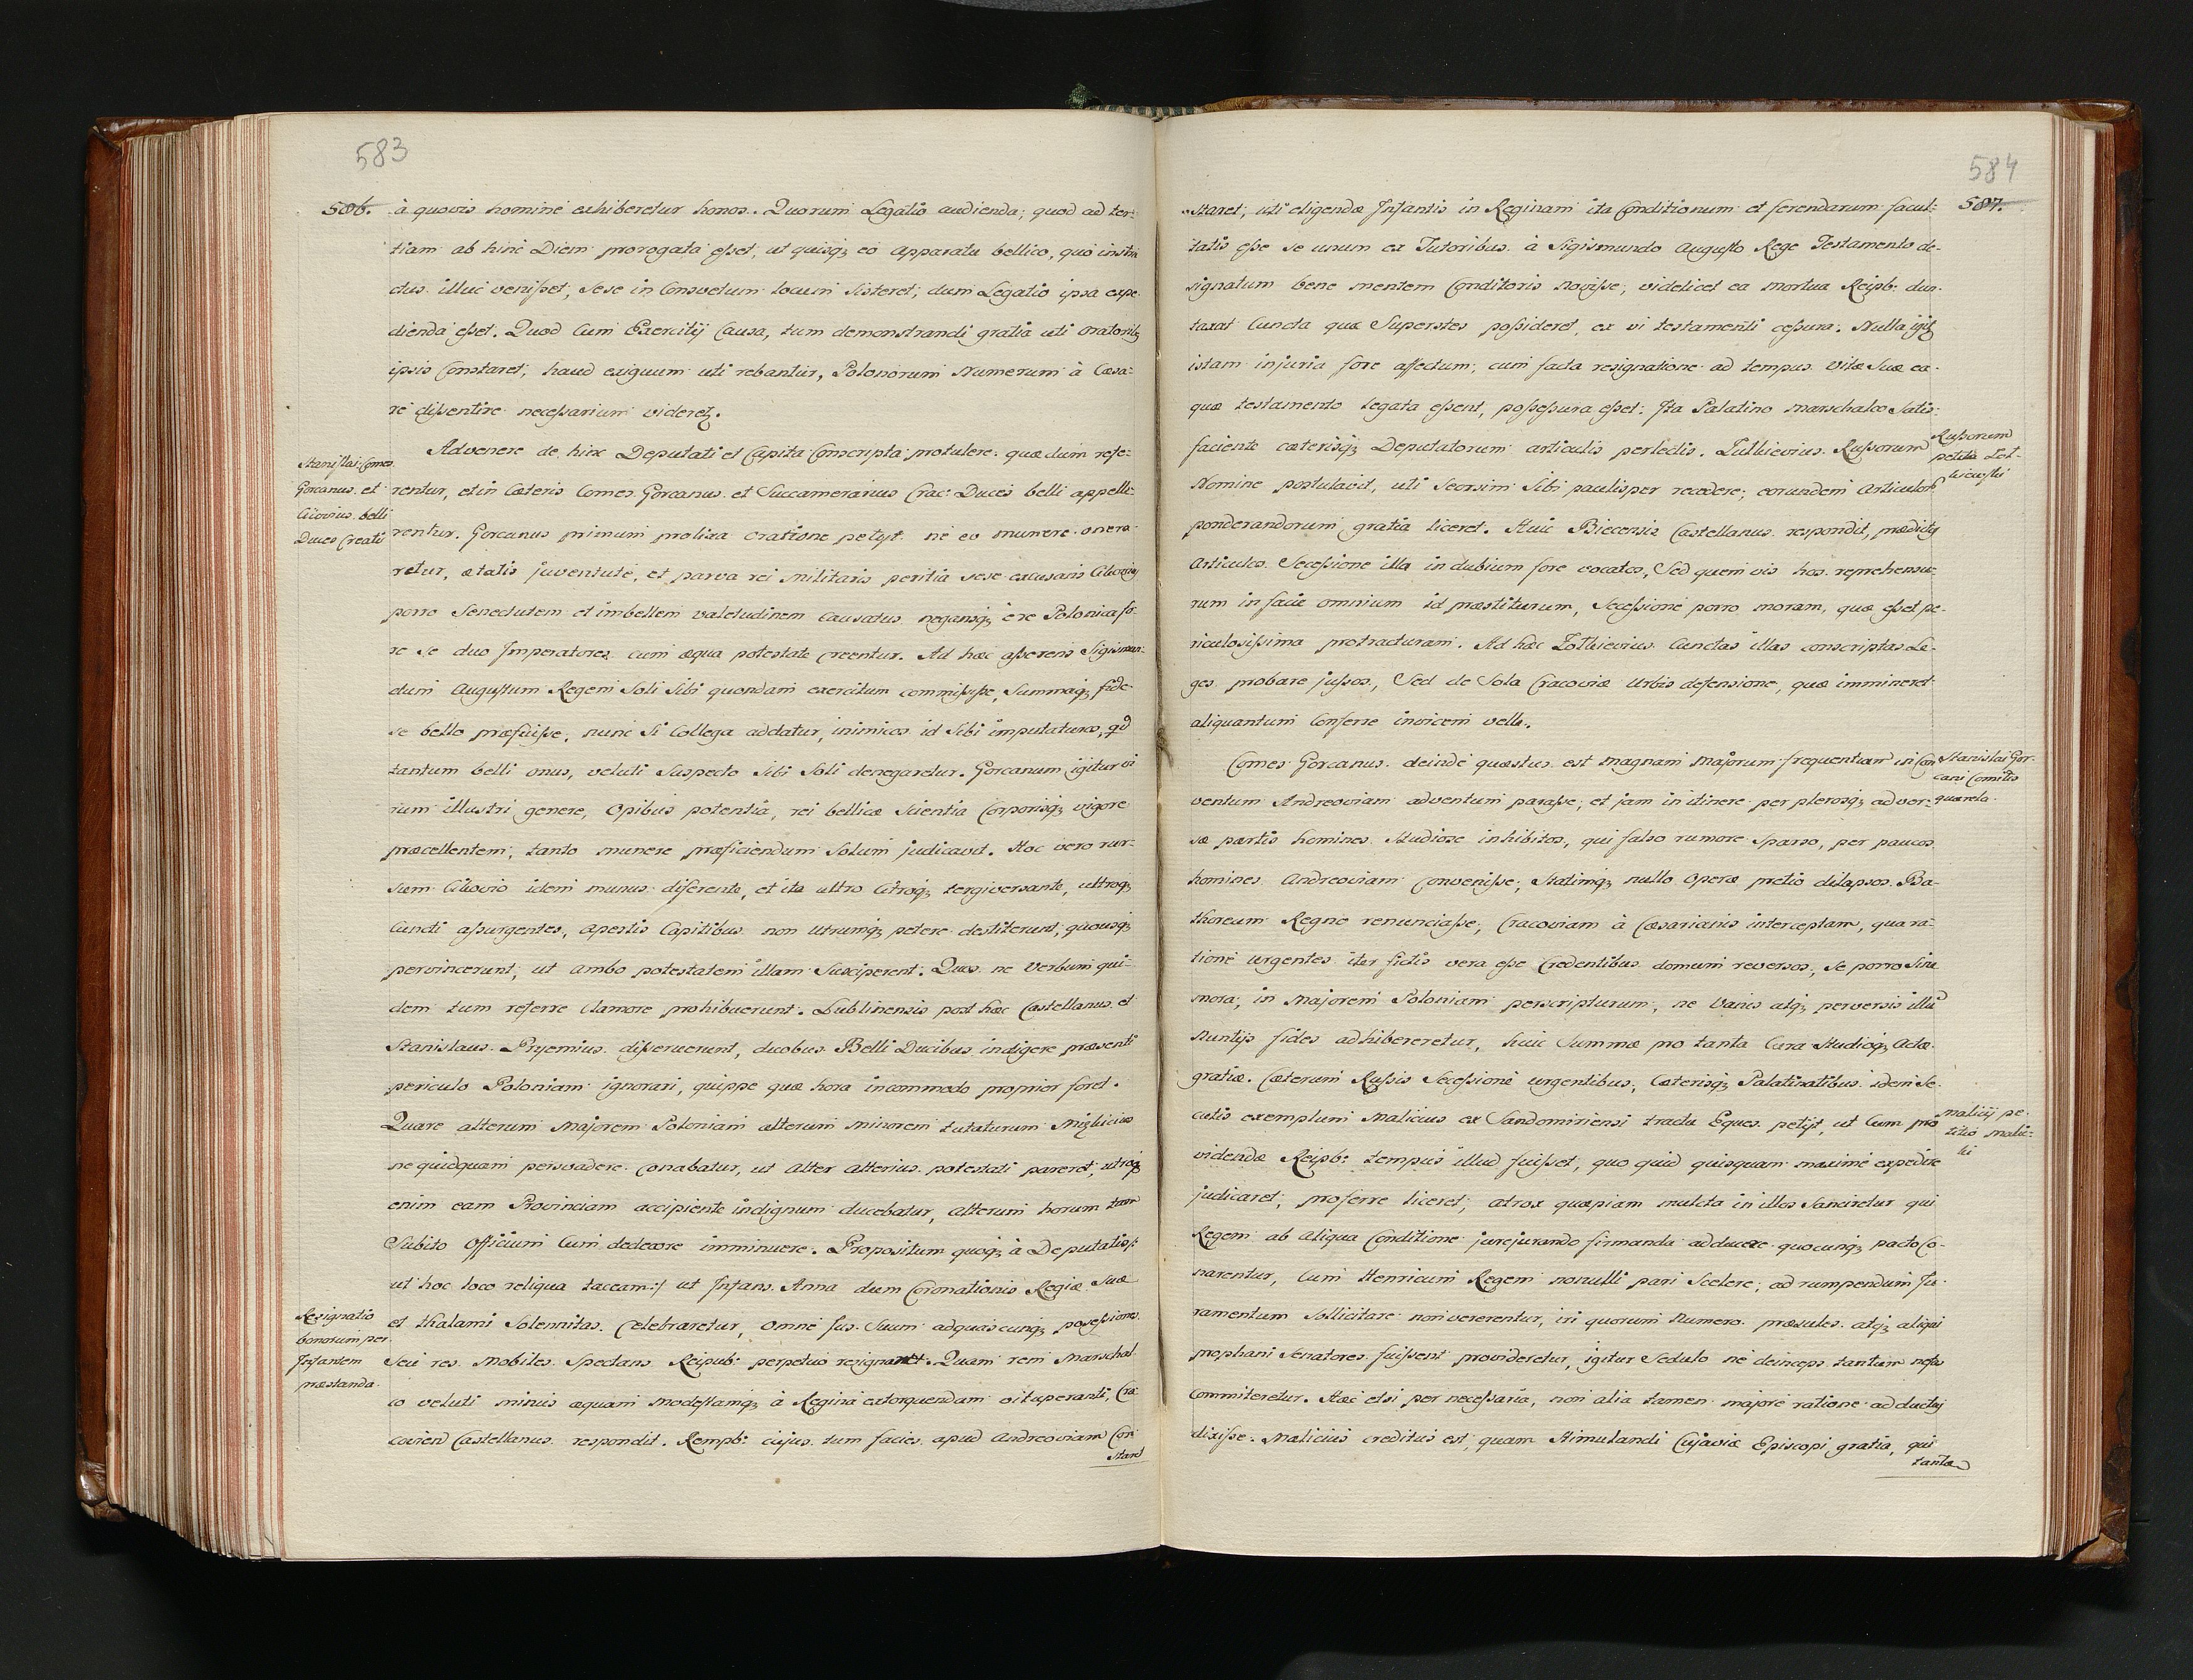 583
586.
à quovis homine exhiberetur honos. Quorum Legatio audienda; quod ad ter:
tiam ab hinc Diem prorogata eſset, ut quisq; eo apparatu bellico, quo instru
ctus illuc veniſset, sese in Consvetum locum Sisteret; dum Legatio ipsa expe
dienda eſset. Quod Cum Exercitij Causa, tum demonstrandi gratia uti oratorib;
ipsis Constaret, haud exiguum uti rebantur, Polonorum Numerum à Cæsa:
re diſsentire neceſsarium videret.
Stanislai Comes
Gorcanus et
Ciiovius belli
Duces Creati
Advenere de hinc Deputati et Capita Conscripta protulere: quæ dum refe:
rentur, et in Cæteris Comes Gorcanus et Succamerarius Crac: Duces belli appella:
rentur. Gorcanus primum prolixa oratione petijt ne eo munere onera:
retur, ætatis juventute, et parva rei militaris peritia sese excusans
porro Senectutem et imbellem valetudinem causatus negansq; è re Polonica fo:
re si duo Imperatores cum æqua potestate creentur. Ad hæc aſserens Sigismun:
dum Augustum Regem Soli Sibi quondam exercitum commiſsiſse, Summaq; fide
se bello præfuiſse, nunc Si Collega addatur, inimicos id Sibi imputaturos, qd
tantum belli onus, veluti Suspecto Sibi Soli denegaretur. Gorcanum igitur vi
rum illustri genere, Opibus potentia, rei bellicæ Scientia Corporisq; vigore
præcellentem, tanto munere præficiendum Solum judicavit. Hoc vero rur:
sum Ciiovio idem munus diferente, et ita ultro Citroq; tergiversante, ultroq;
Cuncti aſsurgentes, apertis Capitibus non utrumq; petere destiterunt, quousq;
pervincerunt, ut ambo potestatem illam Susciperent. Quos ne verbum qui:
dem tum referre Clamore prohibuerunt. Lublinensis post hæc Castellanus et
Stanislaus Pryemius diſseruerunt, duobus Belli Ducibus indigere præsenti
periculo Poloniam ignorari, quippe quæ hora incommodo proprior foret.
Quare alterum Majorem Poloniam alterum Minorem tutaturum
ne quidquam persvadere Conabatur, ut alter alterius potestati pareret, utroq;
enim eam Provinciam accipiente indignum ducebatur, alterum horum tam
Subito officium Cum dedecore imminuere. Propositum quoq; à Deputatis /:
ut hoc loco reliqua taceam :/ ut Infans Anna dum Coronationis Regiæ Suæ
Resignatio
bonorum per
Infantem
præstanda.
et thalami Solennitas Celebraretur, omne Jus Suum ad quas cunq; poſseſsiones
Seu res Mobiles Spectans Reipub: perpetuo resignaret. Quam rem Marschal
co veluti minus æquam modestamq; à Regina extorquendam vituperanti, Cra
covien Castellanus respondit. Rempb: cujus tum facies apud Andreoviam Con
staret
584
587.
staret, uti eligendæ Infantis in Reginam ita Conditionum et ferendarum facul:
tatis eſse se unum ex Tutoribus à Sigismundo Augusto Rege Testamento de:
signatum bene mentem Conditoris noviſse, videlicet ea mortua Reipb: dun:
taxat Cuncta quæ Superstes poſsideret, ex vi testamenti ceſsura. Nulla igit;
istam injuria fore affectum, cum facta resignatione ad tempus vitæ Suæ ea
quæ testamento legata eſsent, poſseſsura eſset. Ita Palatino Marschalco Satis:
faciente cæterisq; Deputatorum articulis perlectis. Zulkievius Ruſsorum
Ruſsorum
petita Zol-
kiewski
Nomine postulavit, uti Seorsim Sibi paulisper recedere, eorundem Articulor
ponderandorum gratia liceret. Huic Biecensis Castellanus respondit, prædictos
Articulos Seceſsione illa in dubium fore vocatos, Sed quem vis hos reprehensu:
rum in facie omnium id præstiturum, Seceſsione porro moram, quæ eſset pe:
riculosiſsima protracturam. Ad hæc Zolkievius Cunctas illas conscriptas Le:
ges probare juſsos, Sed de Sola Cracoviæ Urbis defensione, quæ immineret
aliquantum Conferre invicem velle.
Comes Gorcanus deinde quæstus est magnam majorum frequentiam in Con
Stanislai Gor:
cani Comitis
quærela.
ventum Andreoviam adventum paraſse, et jam in itinere per plerosq; adver:
sæ partis homines Studiose inhibitos, qui falso rumore Sparso, per paucos
homines Andreoviam Conveniſse, Statimq; nullo Operæ pretio dilapsos. Ba:
thoreum Regno renunciaſse, Cracoviam à Cæsarianis interceptam, qua ra:
tione urgentes iter fictis vera eſse Credentibus domum reversos, Se porro Sine
mora, in Majorem Poloniam perscripturum, ne Vanis atq; perversis
Nuntijs fides adhibereretur, huic Summæ pro tanta Cura Studioq; actæ
gratiæ. Cæterum Ruſsis Seceſsione urgentibus, Cæterisq; Palatinatibus idem Se:
cutis exemplum Malicius ex Sandomiriensi tractu Eques petijt, ut Cum pro
Malicij pe:
titio Malic:
ki
videndæ Reipb: tempus illud fuiſset, quo quid quisquam maxime expedire
judicaret, proferre liceret, atrox quæpiam mulcta in illos Sanciretur qui
Regem ab aliqua Conditione jurejurando firmanda adducere quocunq; pacto Co:
narentur, Cum Henricum Regem nonulli pari Scelere, ad rumpendum Ju:
ramentum Sollicitare non vererentur, iri quorum Numero præsules atq; aliqui
prophani Senatores fuiſsent provideretur, igitur Sedulo ne deinceps tantum nefas
Commiteretur. Hæc etsi per neceſsaria, non alia tamen majore ratione adductus
dixiſse Malicius creditus est, quam Stimulandi Cujaviæ Episcopi gratia, qui
tantæ